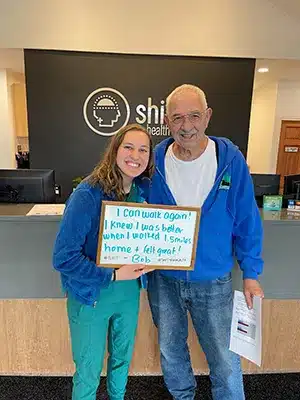 shi
health
I can walk again!
I knew I was better
when I walked 1.5 miles
home + felt great!
- Bob